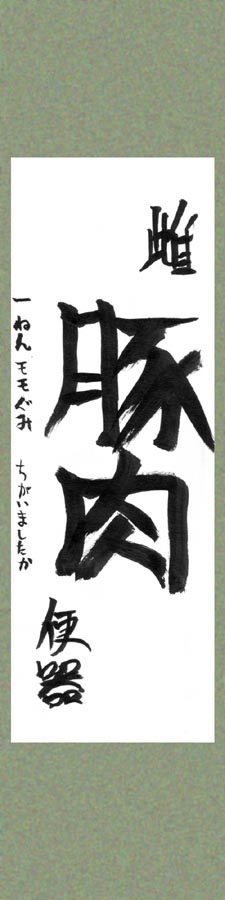 雌豚肉便器
一ねんモモぐみ ちがいましたか